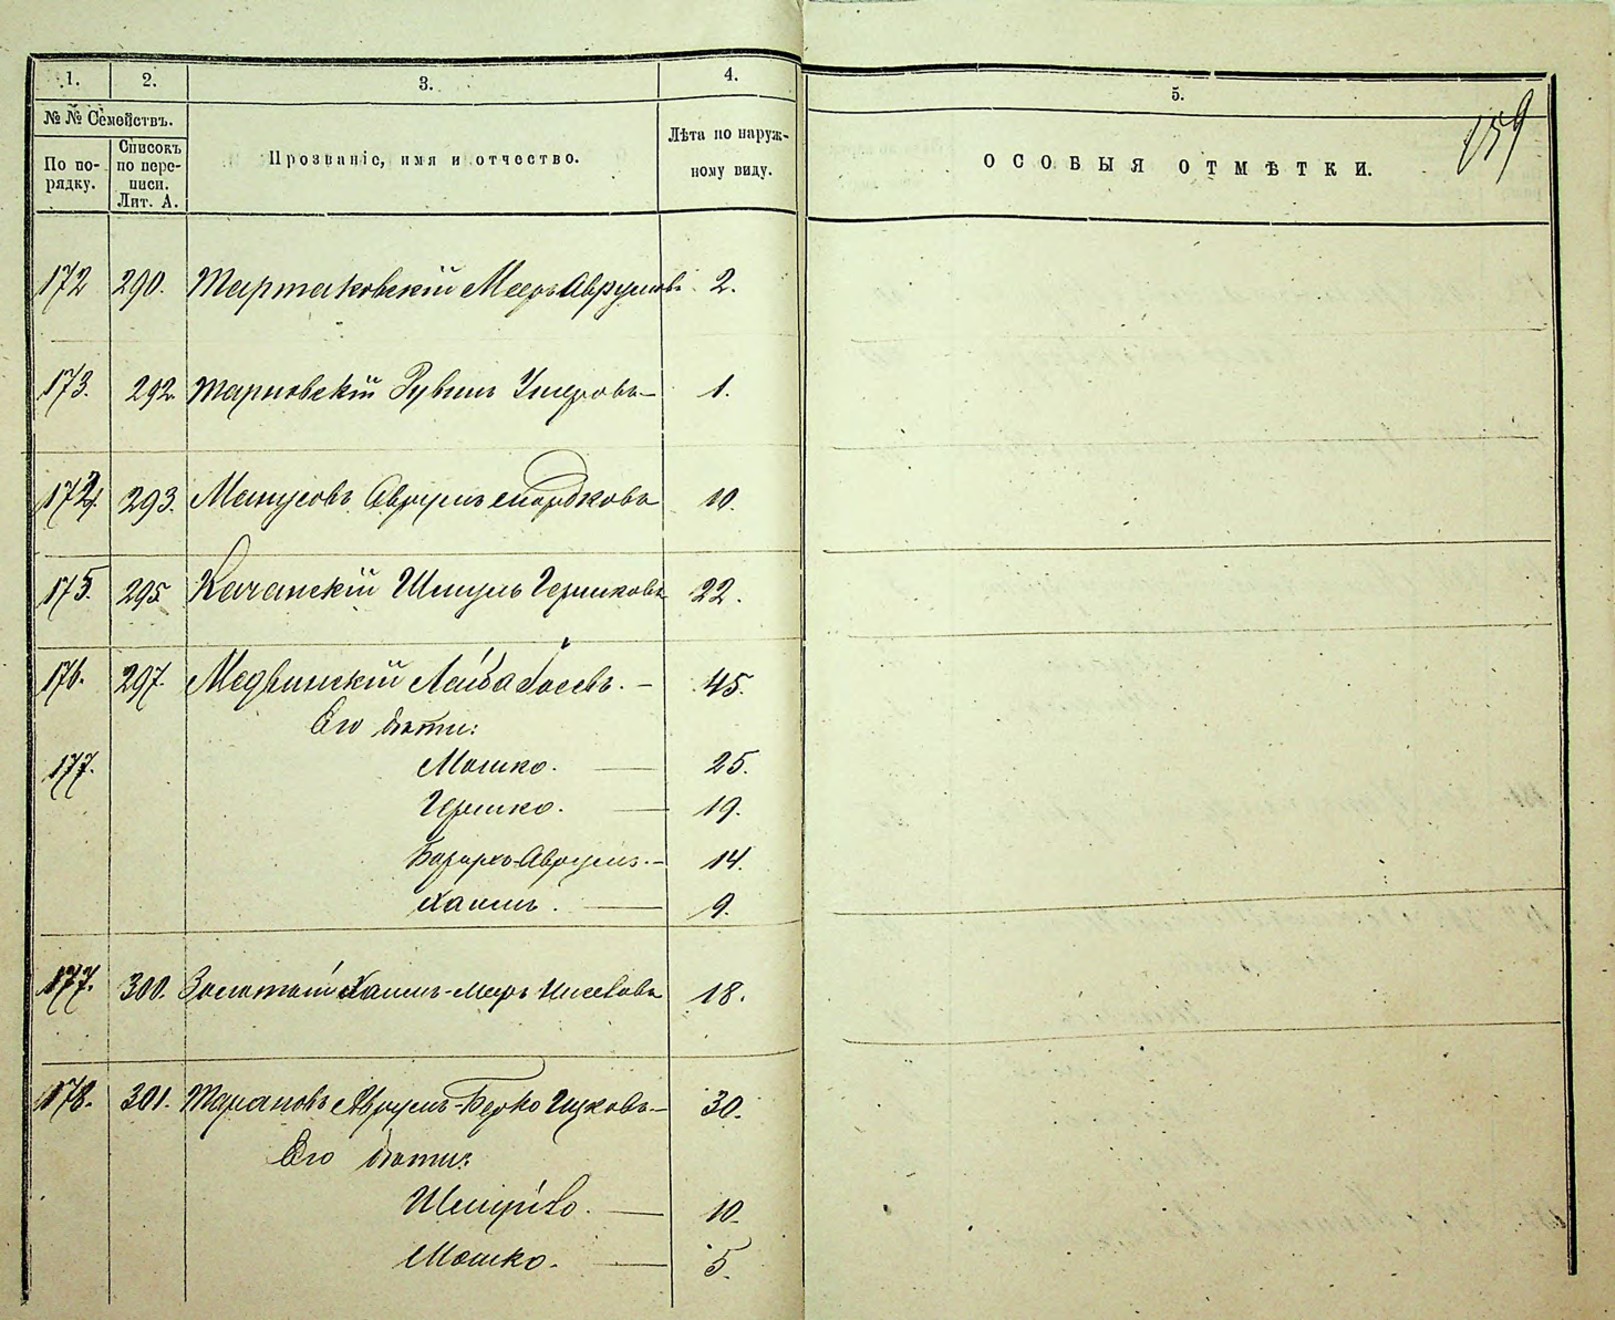 1. 2. 3. 4. 5.
159
№ № Семействъ.
По по-рядку.
Списокъ по пере-писи. Лит. А.
Прозваніе, имя и отчество.
Лѣта по наруж-ному виду.
ОСОБЫЯ ОТМѢТКИ.
172 290. Тартаковскій Меер Аврумовъ 2.
173. 292. Тарновскій Рувин 1.
174. 293. Манусовъ Аврумъ 10.
175. 295. Качанскій Шмуль Гершковъ 22.
176. 297. Медвинскій Лейба Іосевъ. — 45.
Его дѣти:
177. Мошко. — 25.
Гершко. — 19.
Борухъ-Аврумъ. — 14.
Хаимъ. — 9.
177. 300. Золотой Хаимъ-Меръ 18.
178. 301. Тарановъ Аврумъ-Берко Ицковъ — 30.
Его дѣти:
— 10.
Мошко. — 5.